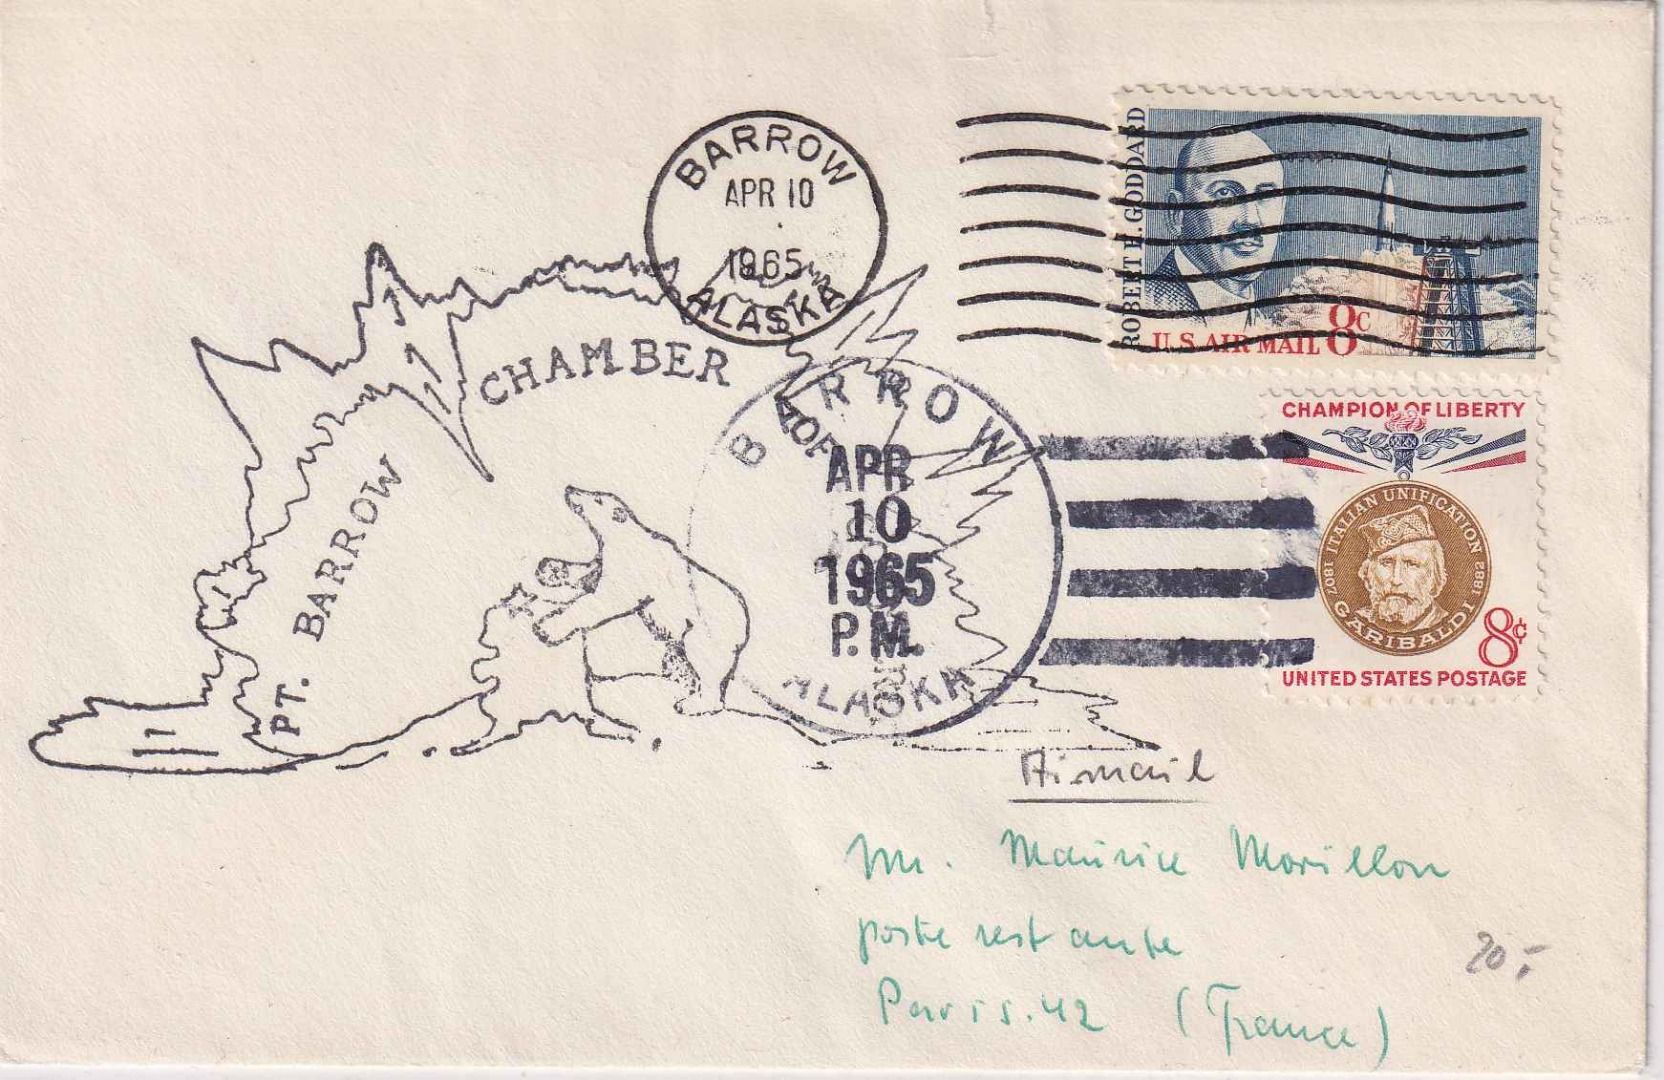 BARROW
APR 10
1965
ALASKA
ROBERT H. GODDARD
U.S. AIR MAIL 8c
CHAMBER
OF
PT. BARROW
BARROW
APR
10
1965
P.M.
ALASKA
CHAMPION OF LIBERTY
1807 ITALIAN UNIFICATION 1882
GARIBALDI
8¢
UNITED STATES POSTAGE
Airmail
Mr. Maurice Morillon
poste restante
Paris. 42 (France)
20.-